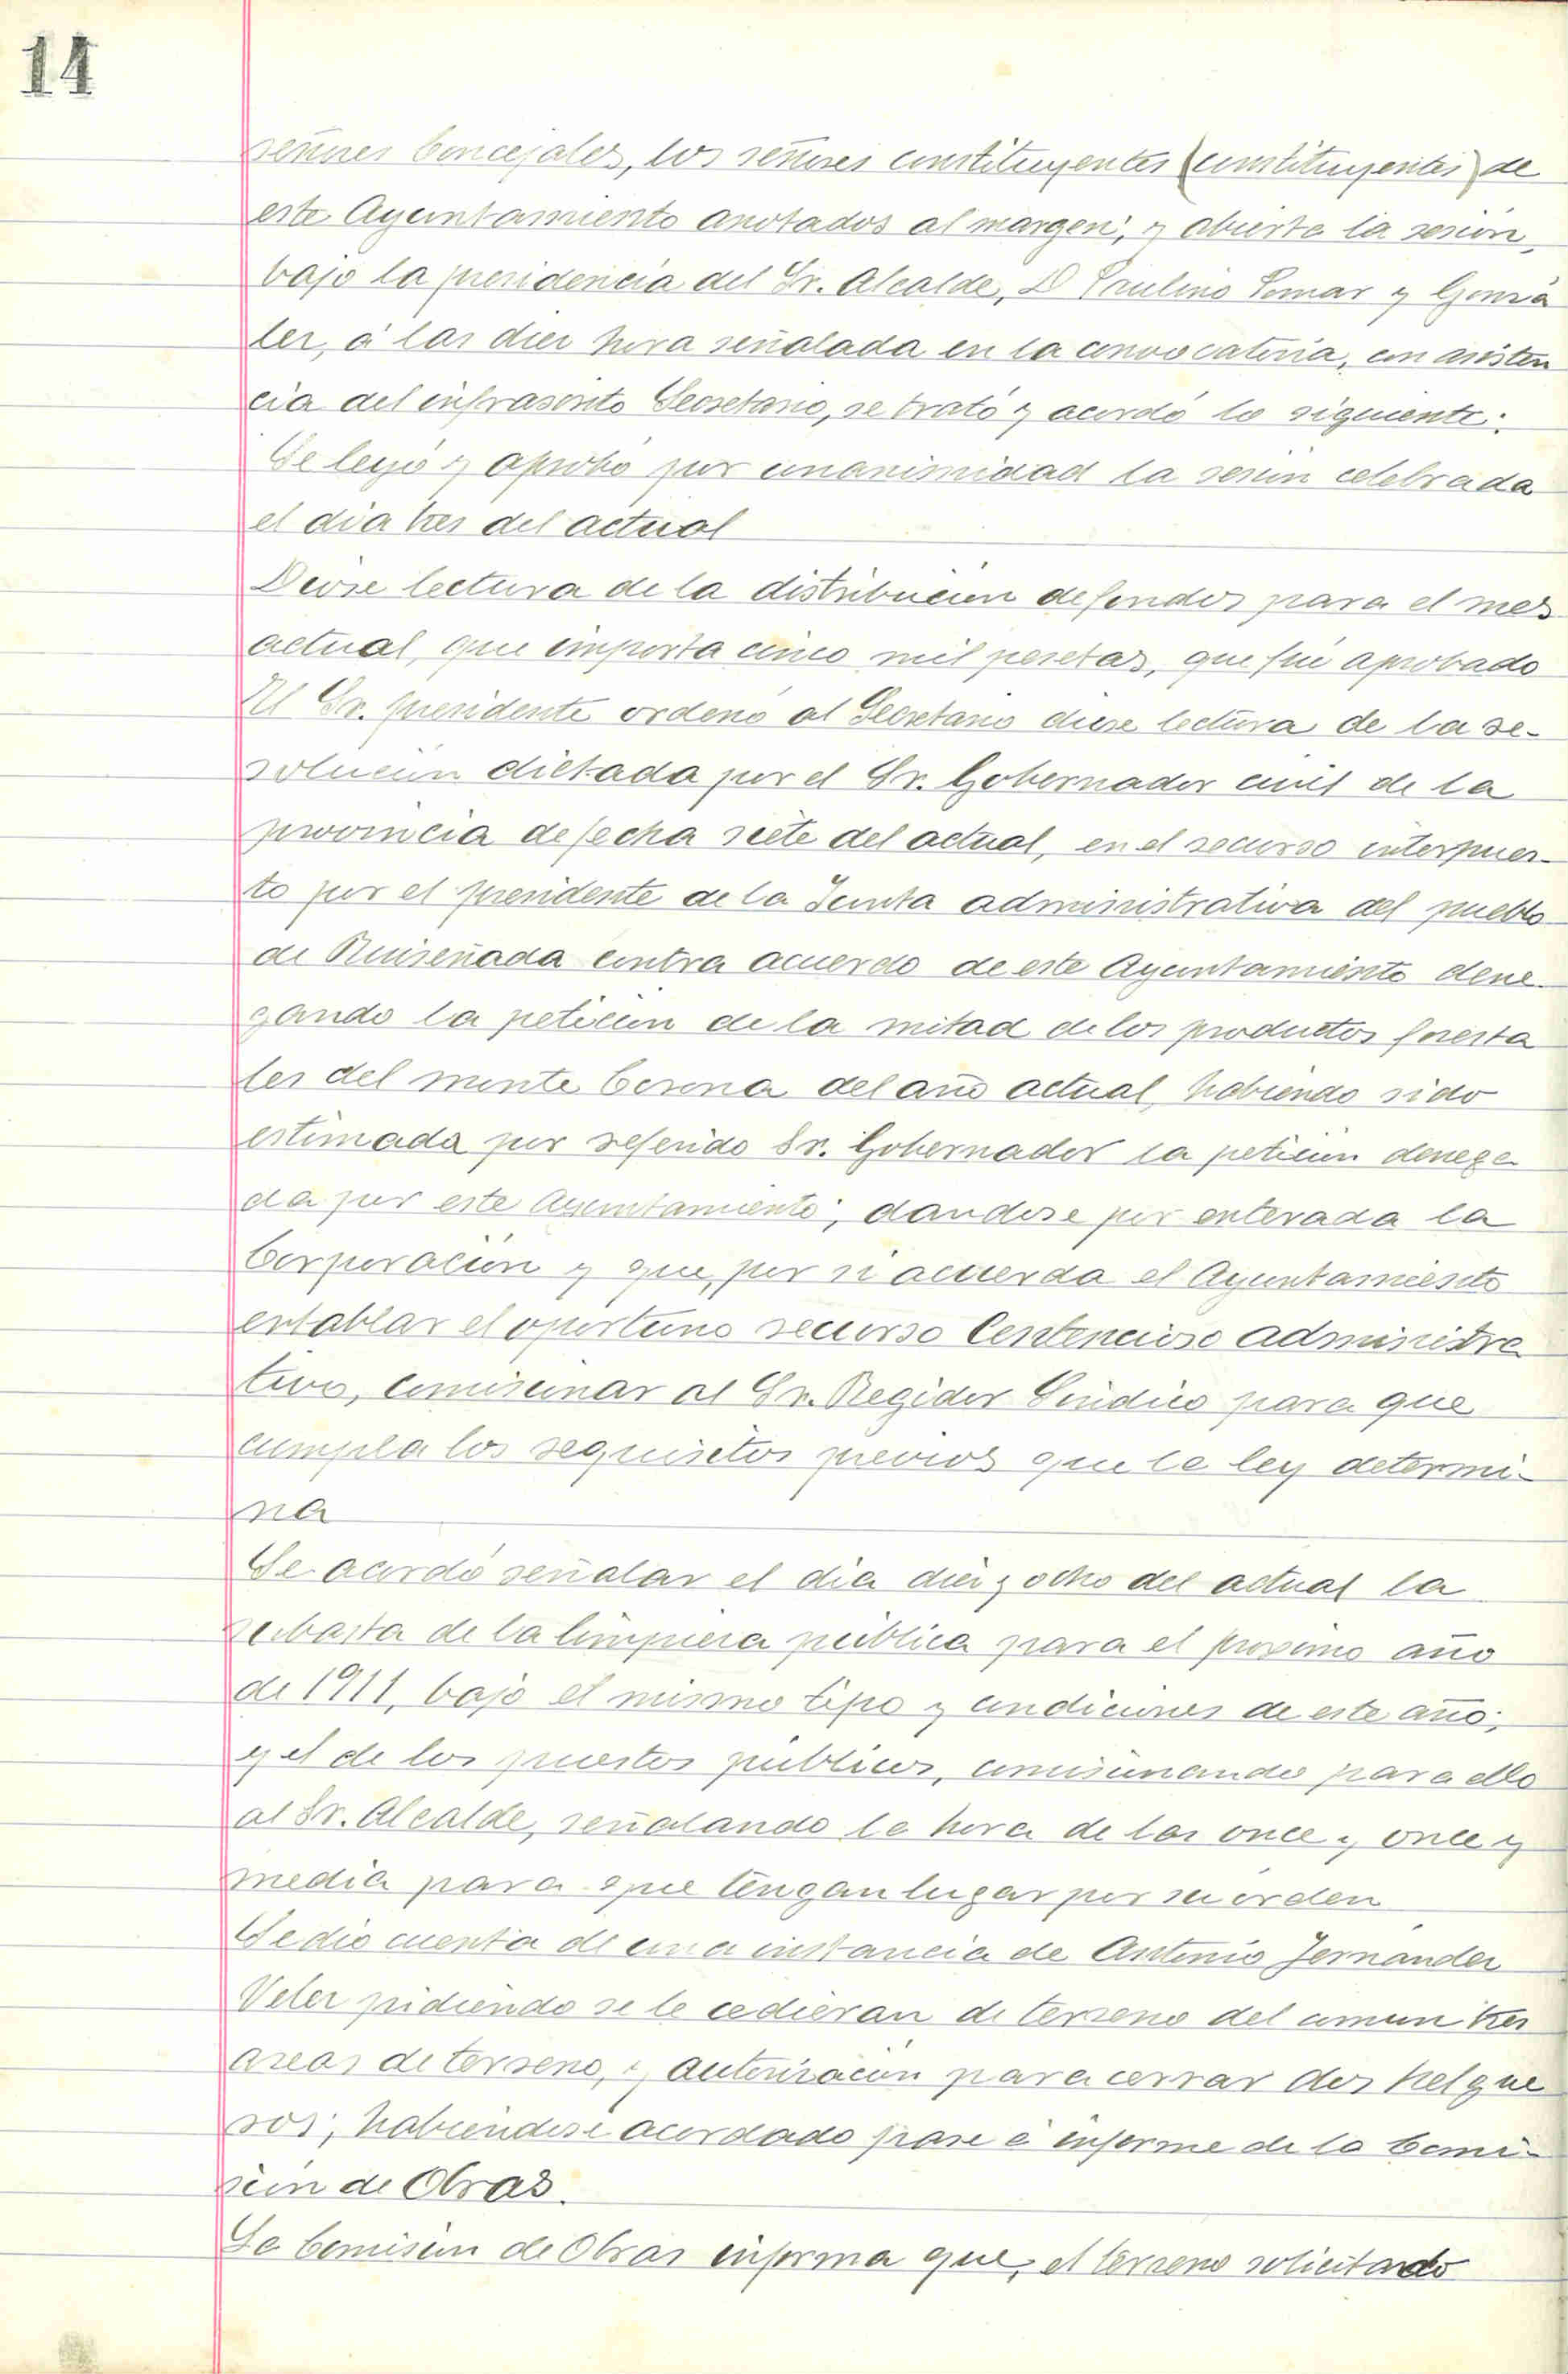 14
señores Concejales, los señores constituyentes (constituyentes) de
este Ayuntamiento anotados al margen; y abierta la sesión,
bajo la presidencia del Sr. Alcalde, D Paulino Pomar y Gonzá
lez, á las diez hora señalada en la convocatoria, con asisten
cia del infrascrito Secretario, se trató y acordó lo siguiente:
Se leyó y aprobó por unanimidad la sesión celebrada
el dia tres del actual
Diose lectura de la distribución de fondos para el mes
actual, que importa cinco mil pesetas, que fué aprobado
El Sr. presidente ordenó al Secretario diese lectura de la re-
solución dictada por el Sr. Gobernador civil de la
provincia de fecha siete del actual, en el recurso interpues-
to por el presidente de la Junta administrativa del pueblo
de Ruiseñada contra acuerdo de este Ayuntamiento dene-
gando la petición de la mitad de los productos foresta
les del monte Corona del año actual, habiendo sido
estimada por referido Sr. Gobernador la petición denega
da por este Ayuntamiento; dandose por enterada la
Corporación y que, por si acuerda el Ayuntamiento
entablar el oportuno recurso Contencioso administra
tivo, comisionar al Sr. Regidor Sindico para que
cumpla los requisitos previos que la ley determi-
na
Se acordó señalar el dia diez y ocho del actual la
subasta de la limpieza pública para el proximo año
de 1911, bajo el mismo tipo y condiciones de este año;
y el de los puestos públicos, comisionando para ello
al Sr. Alcalde, señalando la hora de las once y once y
media para que tengan lugar por su orden
Se dio cuenta de una instancia de Antonio Fernández
Velez pidiendo se le cedieran de terreno del comun tres
areas de terreno, y autorización para cerrar dos helgue
ros; habiendose acordado pase á informe de la Comi-
sión de Obras.
La Comisión de Obras informa que, el terreno solicitado